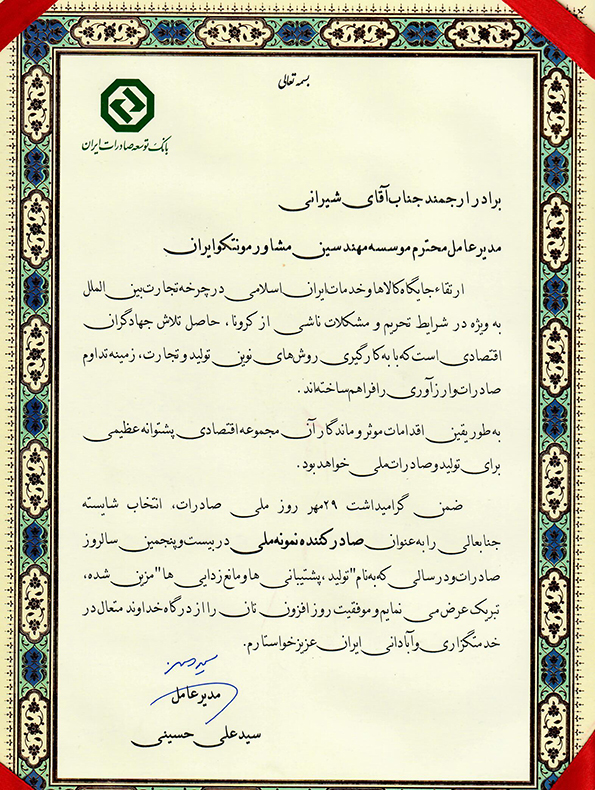 بسمه تعالی
بانک توسعه صادرات ایران
برادر ارجمند جناب آقای شیرانی
مدیرعامل محترم موسسه مهندسین مشاور مونتکو ایران
ارتقاء جایگاه کالاها و خدمات ایران اسلامی در چرخه تجارت بین الملل
به ویژه در شرایط تحریم و مشکلات ناشی از کرونا، حاصل تلاش جهادگران
اقتصادی است که با به کارگیری روش‌های نوین تولید و تجارت، زمینه تداوم
صادرات و ارزآوری را فراهم ساخته‌اند.
به طور یقین اقدامات موثر و ماندگار آن مجموعه اقتصادی پشتوانه عظیمی
برای تولید و صادرات ملی خواهد بود.
ضمن گرامیداشت ۲۹مهر روز ملی صادرات، انتخاب شایسته
جنابعالی را به عنوان صادرکننده نمونه ملی در بیست و پنجمین سالروز
صادرات و در سالی که به نام "تولید، پشتیبانی ها و مانع زدایی ها" مزین شده،
تبریک عرض می نمایم و موفقیت روز افزون تان را از درگاه خداوند متعال در
خدمتگزاری و آبادانی ایران عزیز خواستارم.
مدیرعامل
سید علی حسینی